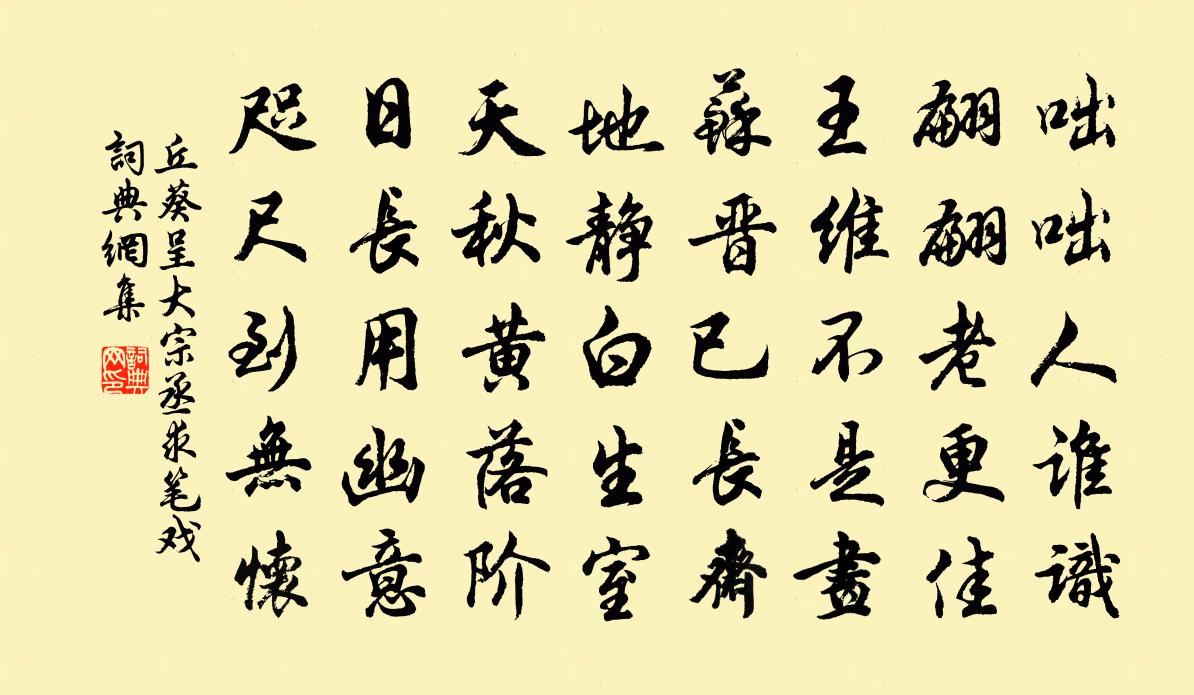 咄咄人谁識
翩翩老更佳
王维不是畫
蘇晋已長齋
地静白生室
天秋黄落阶
日長用幽意
咫尺到無懷
丘葵呈大宗丞求笔戏
詞典網集
詞典网印